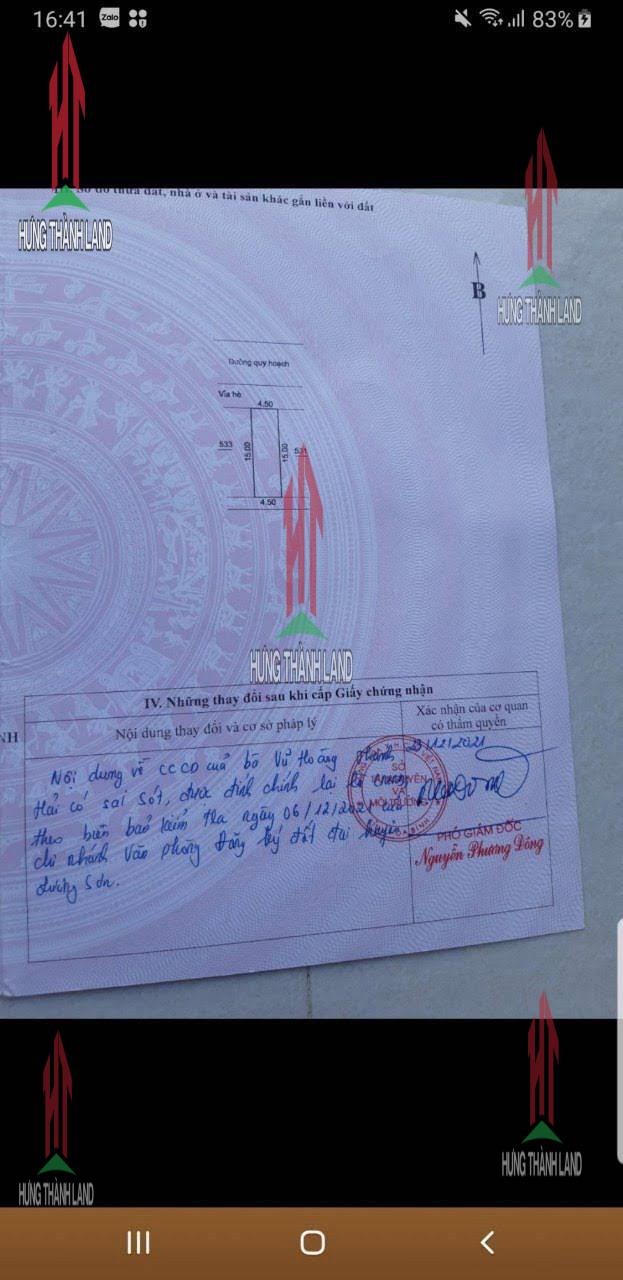 16:41
Zalo
83%
III. Sơ đồ thửa đất, nhà ở và tài sản khác gắn liền với đất
HƯNG THÀNH LAND
HƯNG THÀNH LAND
B
Đường quy hoạch
Vỉa hè
4.50
533
15.00
15.00
531
4.50
HƯNG THÀNH LAND
IV. Những thay đổi sau khi cấp Giấy chứng nhận
NH
Nội dung thay đổi và cơ sở pháp lý
Xác nhận của cơ quan
có thẩm quyền
Nội dung về CCCD của bà Vũ Hoàng Thanh
Hải có sai sót, được đính chính lại là
theo biên bản kiểm tra ngày 06/12/2021 của
chi nhánh Văn phòng Đăng ký đất đai huyện
Lương Sơn.
/12/2021
SỞ
TÀI NGUYÊN
VÀ
MÔI TRƯỜNG
PHÓ GIÁM ĐỐC
Nguyễn Phương Đông
HƯNG THÀNH LAND
HƯNG THÀNH LAND